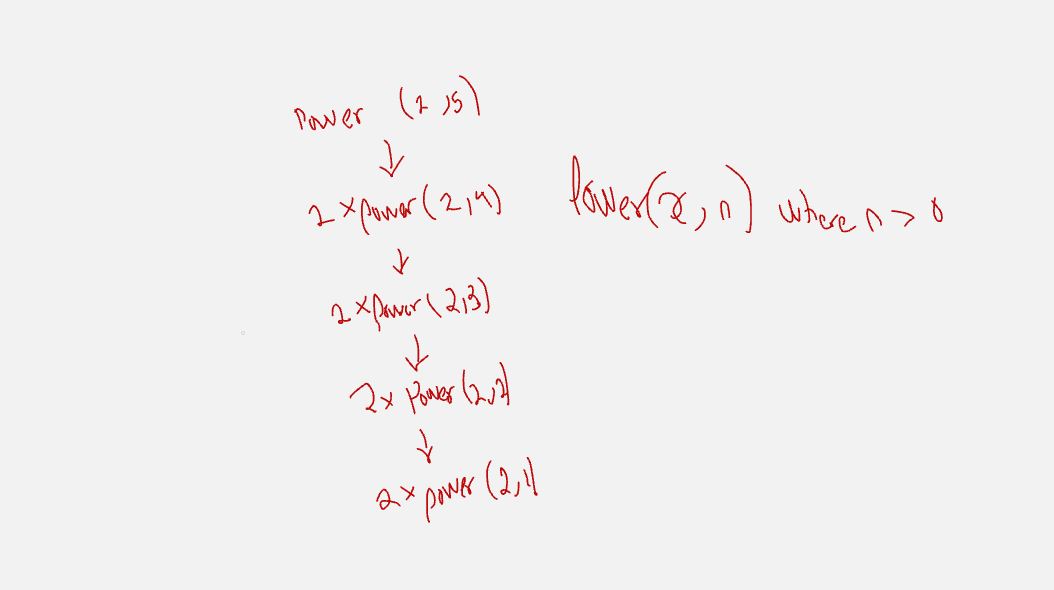 Power (2,5)
↓
2 × power(2,4)
↓
2 × power(2,3)
↓
2 × Power(2,2)
↓
2 × power(2,1)
Power(x, n) where n > 0